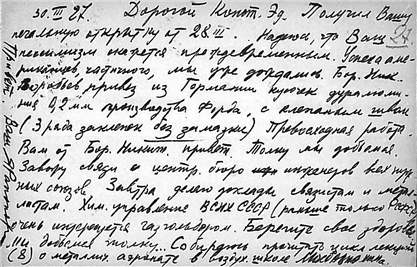 30.III 27. Дорогой Конст. Эд. Получил Вашу
печальную открытку от 28 III. Надеюсь, что Ваш
пессимизм окажется преждевременным. Успеха аме-
риканцев, частичного, мы уже дождались. Бор. Ник.
Воробьев привез из Германии кусочек дуралюми-
ния 0,2 мм производства Форда, с клепаным швом
(3 ряда заклепок без замазки) Превосходная работа
Вам от Бор. Никит. привет. Толку мы добьемся.
Завожу связи с центр. бюро инженеров всех нуж-
ных союзов. Завтра делаю доклады связистам и мета-
листам. Хим. управление ВСНХ СССР (раньше только РСФСР)
очень интересуется газгольдером. Берегите свое здоровье
мы добьемся толку... Собираюсь прочитать цикл лекций
(8) о металлич. аэронате в воздух. школе
Привет. Ваш